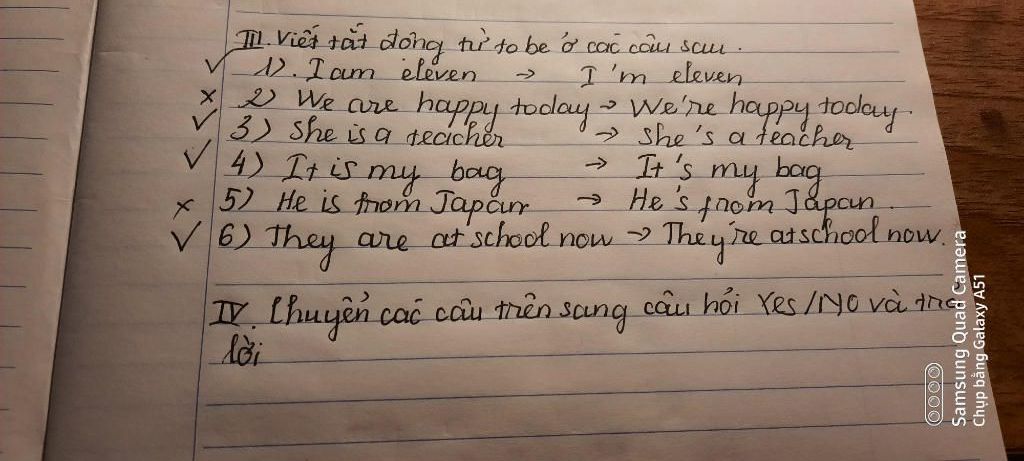 III. Viết tắt động từ to be ở các câu sau.
✓ 1). I am eleven → I'm eleven
× 2) We are happy today → We're happy today.
✓ 3) She is a teacher → She's a teacher
✓ 4) It is my bag → It's my bag
× 5) He is from Japan → He's from Japan.
✓ 6) They are at school now → They're at school now.
IV. Chuyển các câu trên sang câu hỏi Yes/NO và trả
lời
Samsung Quad Camera
Chụp bằng Galaxy A51